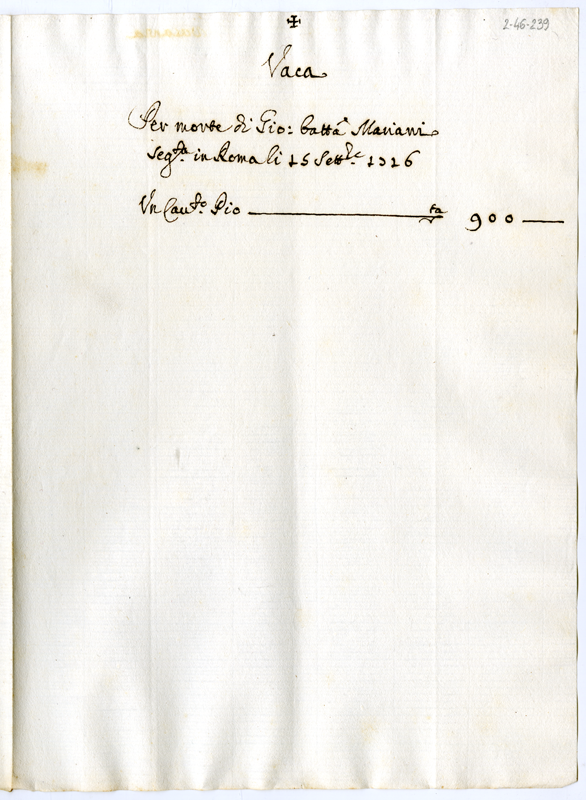 2-46-239
Vaca
Per morte di Gio: Batta Mariani
seg.ta in Roma li 15 Sett.re 1716
Un Cav.to Pio ta 900